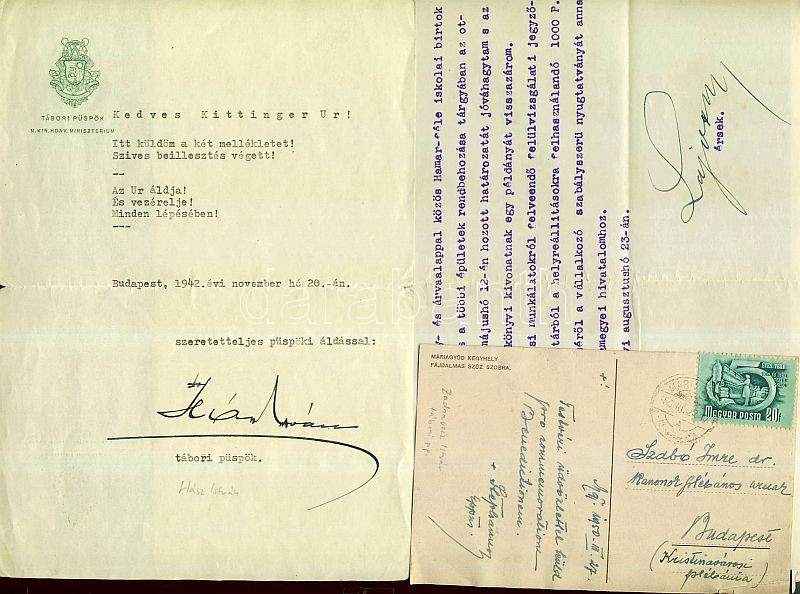 TÁBORI PÜSPÖK
M. KIR. HONV. MINISZTERIUM
Kedves Kittinger Ur!
Itt küldöm a két mellékletet!
Szives beillesztés végett!
--
Az Ur áldja!
És vezérelje!
Minden lépésében!
---
Budapest, 1942.évi november hó 20.-án.
szeretetteljes püspöki áldással:
tábori püspök.
Hász István
y- és árvaalappal közös Hamar-féle iskolai birtok
s a többi épületek rendbehozása tárgyában az ot-
májushó 12-én hozott határozatát jóváhagytam s az
könyvi kivonatnak egy példányát visszazárom.
si munkálatokról felveendő felülvizsgálati jegyző-
tárból a helyreállitásokra felhasználandó 1000 P.
éről a vállalkozó szabályszerü nyugtatványát anna
megyei hivatalomhoz.
vi augusztushó 23-án.
érsek.
darabanth
MÁRIAGYŰD KEGYHELY
FÁJDALMAS SZŰZ SZOBRA.
Zadravecz István
tábori pp.
Testvéri üdvözlettel küld
pro commemoratione
Benedictionem
+ Stephanus
eppus.
Mg. 1950. III. 27.
MAGYAR POSTA 20f
Szabó Imre dr.
kanonok plébános urnak
Budapest
(Krisztinavárosi
plébánia)